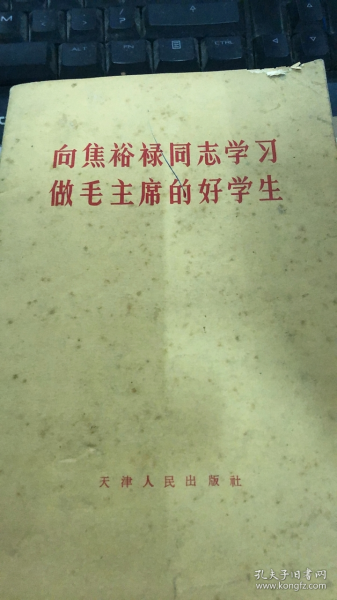 向焦裕禄同志学习
做毛主席的好学生
天津人民出版社
孔夫子旧书网